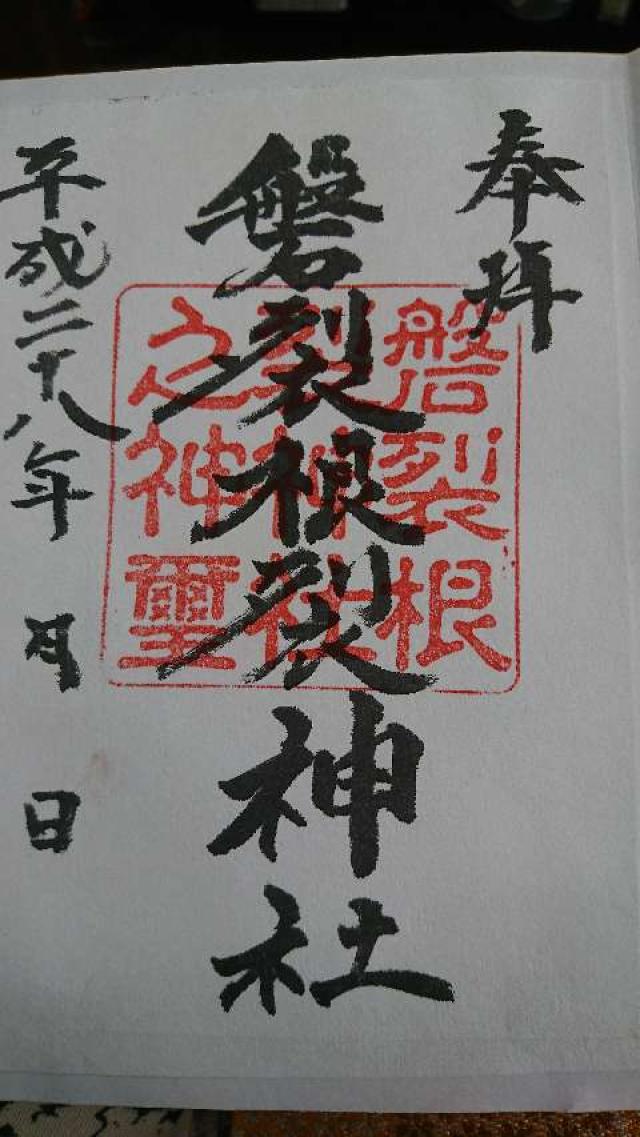 奉拝
磐裂根裂神社
磐裂根
裂神社
之神璽
平成二十八年 月 日